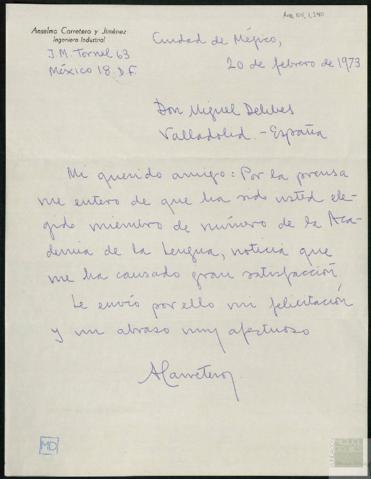 Anselmo Carretero y Jiménez
Ingeniero Industrial
J.M. Tornel 63
México 18 D.F.
Ciudad de Méjico,
20 de febrero de 1973
Don Miguel Delibes
Valladolid.-España
Mi querido amigo: Por la prensa
me entero de que ha sido usted ele-
gido miembro de número de la Aca-
demia de la Lengua, noticia que
me ha causado gran satisfacción.
Le envío por ello mi felicitación
y un abrazo muy afectuoso
ACarretero
MD